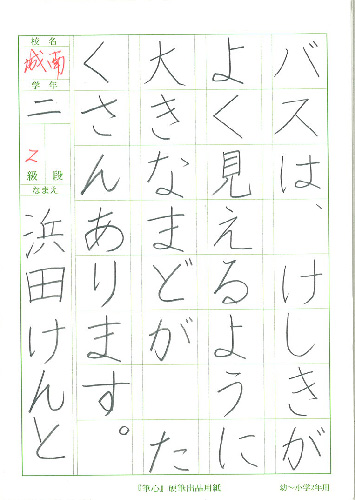 バスは、けしきが
よく見えるように
大きなまどがた
くさんあります。
校名
城南
学年
二
2
級段
なまえ
浜田けんと
『筆心』硬筆出品用紙
幼〜小学2年用